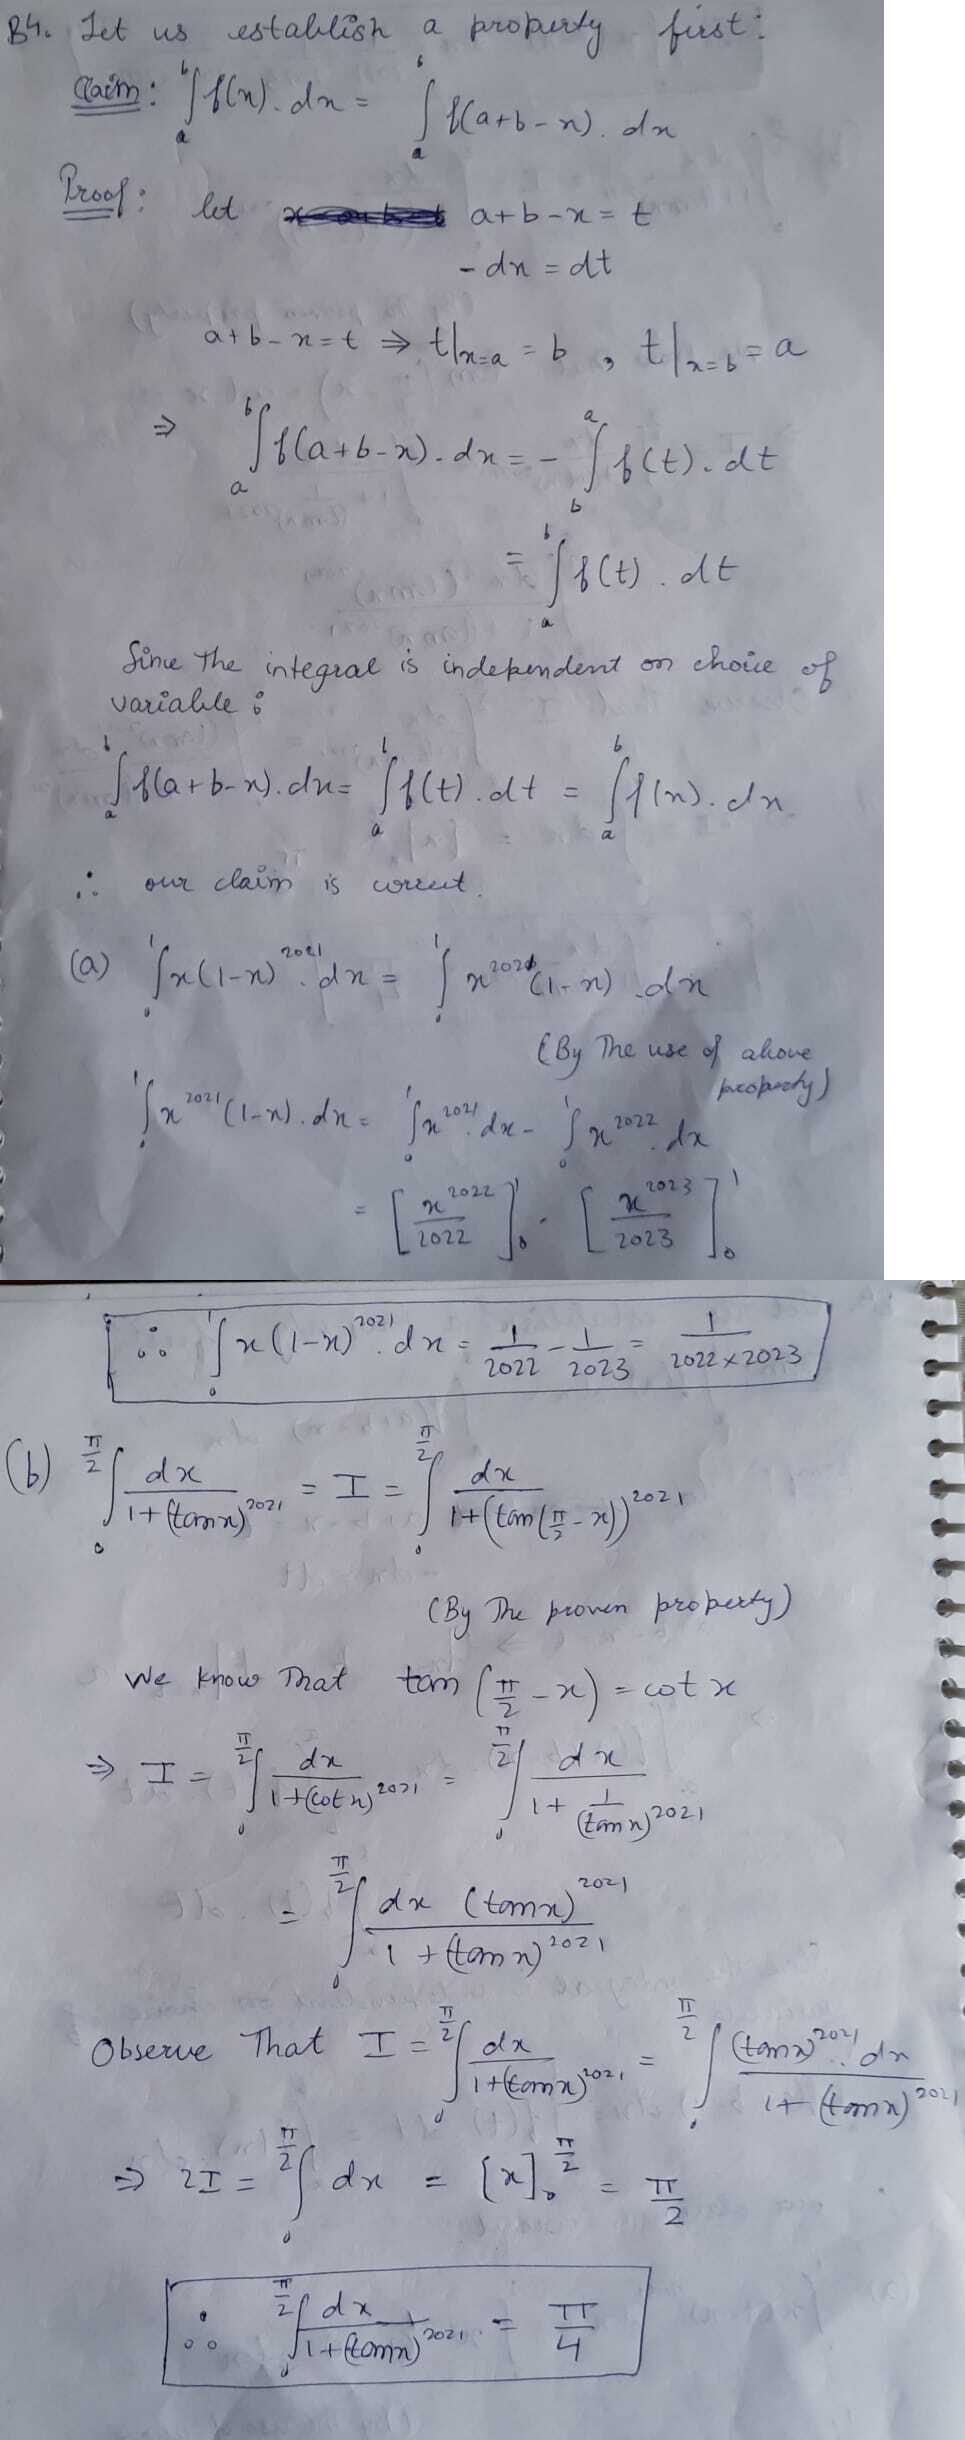 B4. Let us establish a property first:
Claim: ∫_a^b f(x). dx = ∫_a^b f(a+b-x). dx
Proof: let a+b-x = t
-dx = dt
a+b-x=t ⇒ t|_{x=a} = b , t|_{x=b} = a
⇒ ∫_a^b f(a+b-x). dx = - ∫_b^a f(t). dt
= ∫_a^b f(t). dt
Sine the integral is independent on choice of
variable:
∫_a^b f(a+b-x). dx = ∫_a^b f(t). dt = ∫_a^b f(x). dx
∴ our claim is correct.
(a) ∫_0^1 x(1-x)^{2021}. dx = ∫_0^1 x^{2021}(1-x). dx
(By The use of above
property)
∫_0^1 x^{2021}(1-x). dx = ∫_0^1 x^{2021}. dx - ∫_0^1 x^{2022}. dx
= [x^{2022}/2022]_0^1 - [x^{2023}/2023]_0^1
∴ ∫_0^1 x(1-x)^{2021}. dx = 1/2022 - 1/2023 = 1/(2022×2023)
(b) ∫_0^{π/2} dx/(1+(tanx)^{2021}) = I = ∫_0^{π/2} dx/(1+(tan(π/2-x))^{2021})
(By The proven property)
We know That tan(π/2-x) = cot x
⇒ I = ∫_0^{π/2} dx/(1+(cotx)^{2021}) = ∫_0^{π/2} dx/(1+1/(tanx)^{2021})
= ∫_0^{π/2} dx (tanx)^{2021}/(1+(tanx)^{2021})
Observe That I = ∫_0^{π/2} dx/(1+(tanx)^{2021}) = ∫_0^{π/2} (tanx)^{2021}. dx/(1+(tanx)^{2021})
⇒ 2I = ∫_0^{π/2} dx = [x]_0^{π/2} = π/2
∴ ∫_0^{π/2} dx/(1+(tanx)^{2021}) = π/4